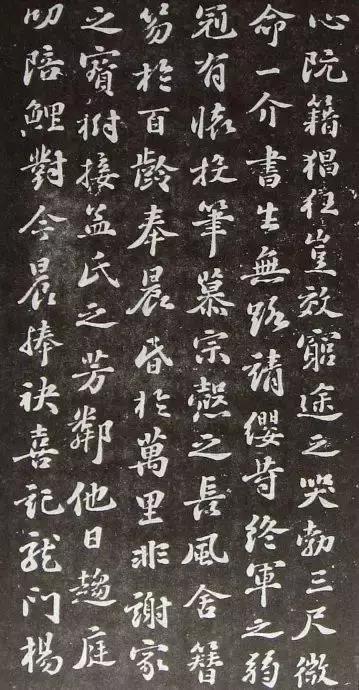 心阮籍猖狂豈效窮途之哭勃三尺微
命一介書生無路請纓等終軍之弱
冠有懷投筆慕宗愨之長風舍簪
笏於百齡奉晨昏於萬里非謝家
之寶樹接孟氏之芳鄰他日趨庭
叨陪鯉對今晨捧袂喜託龍門楊